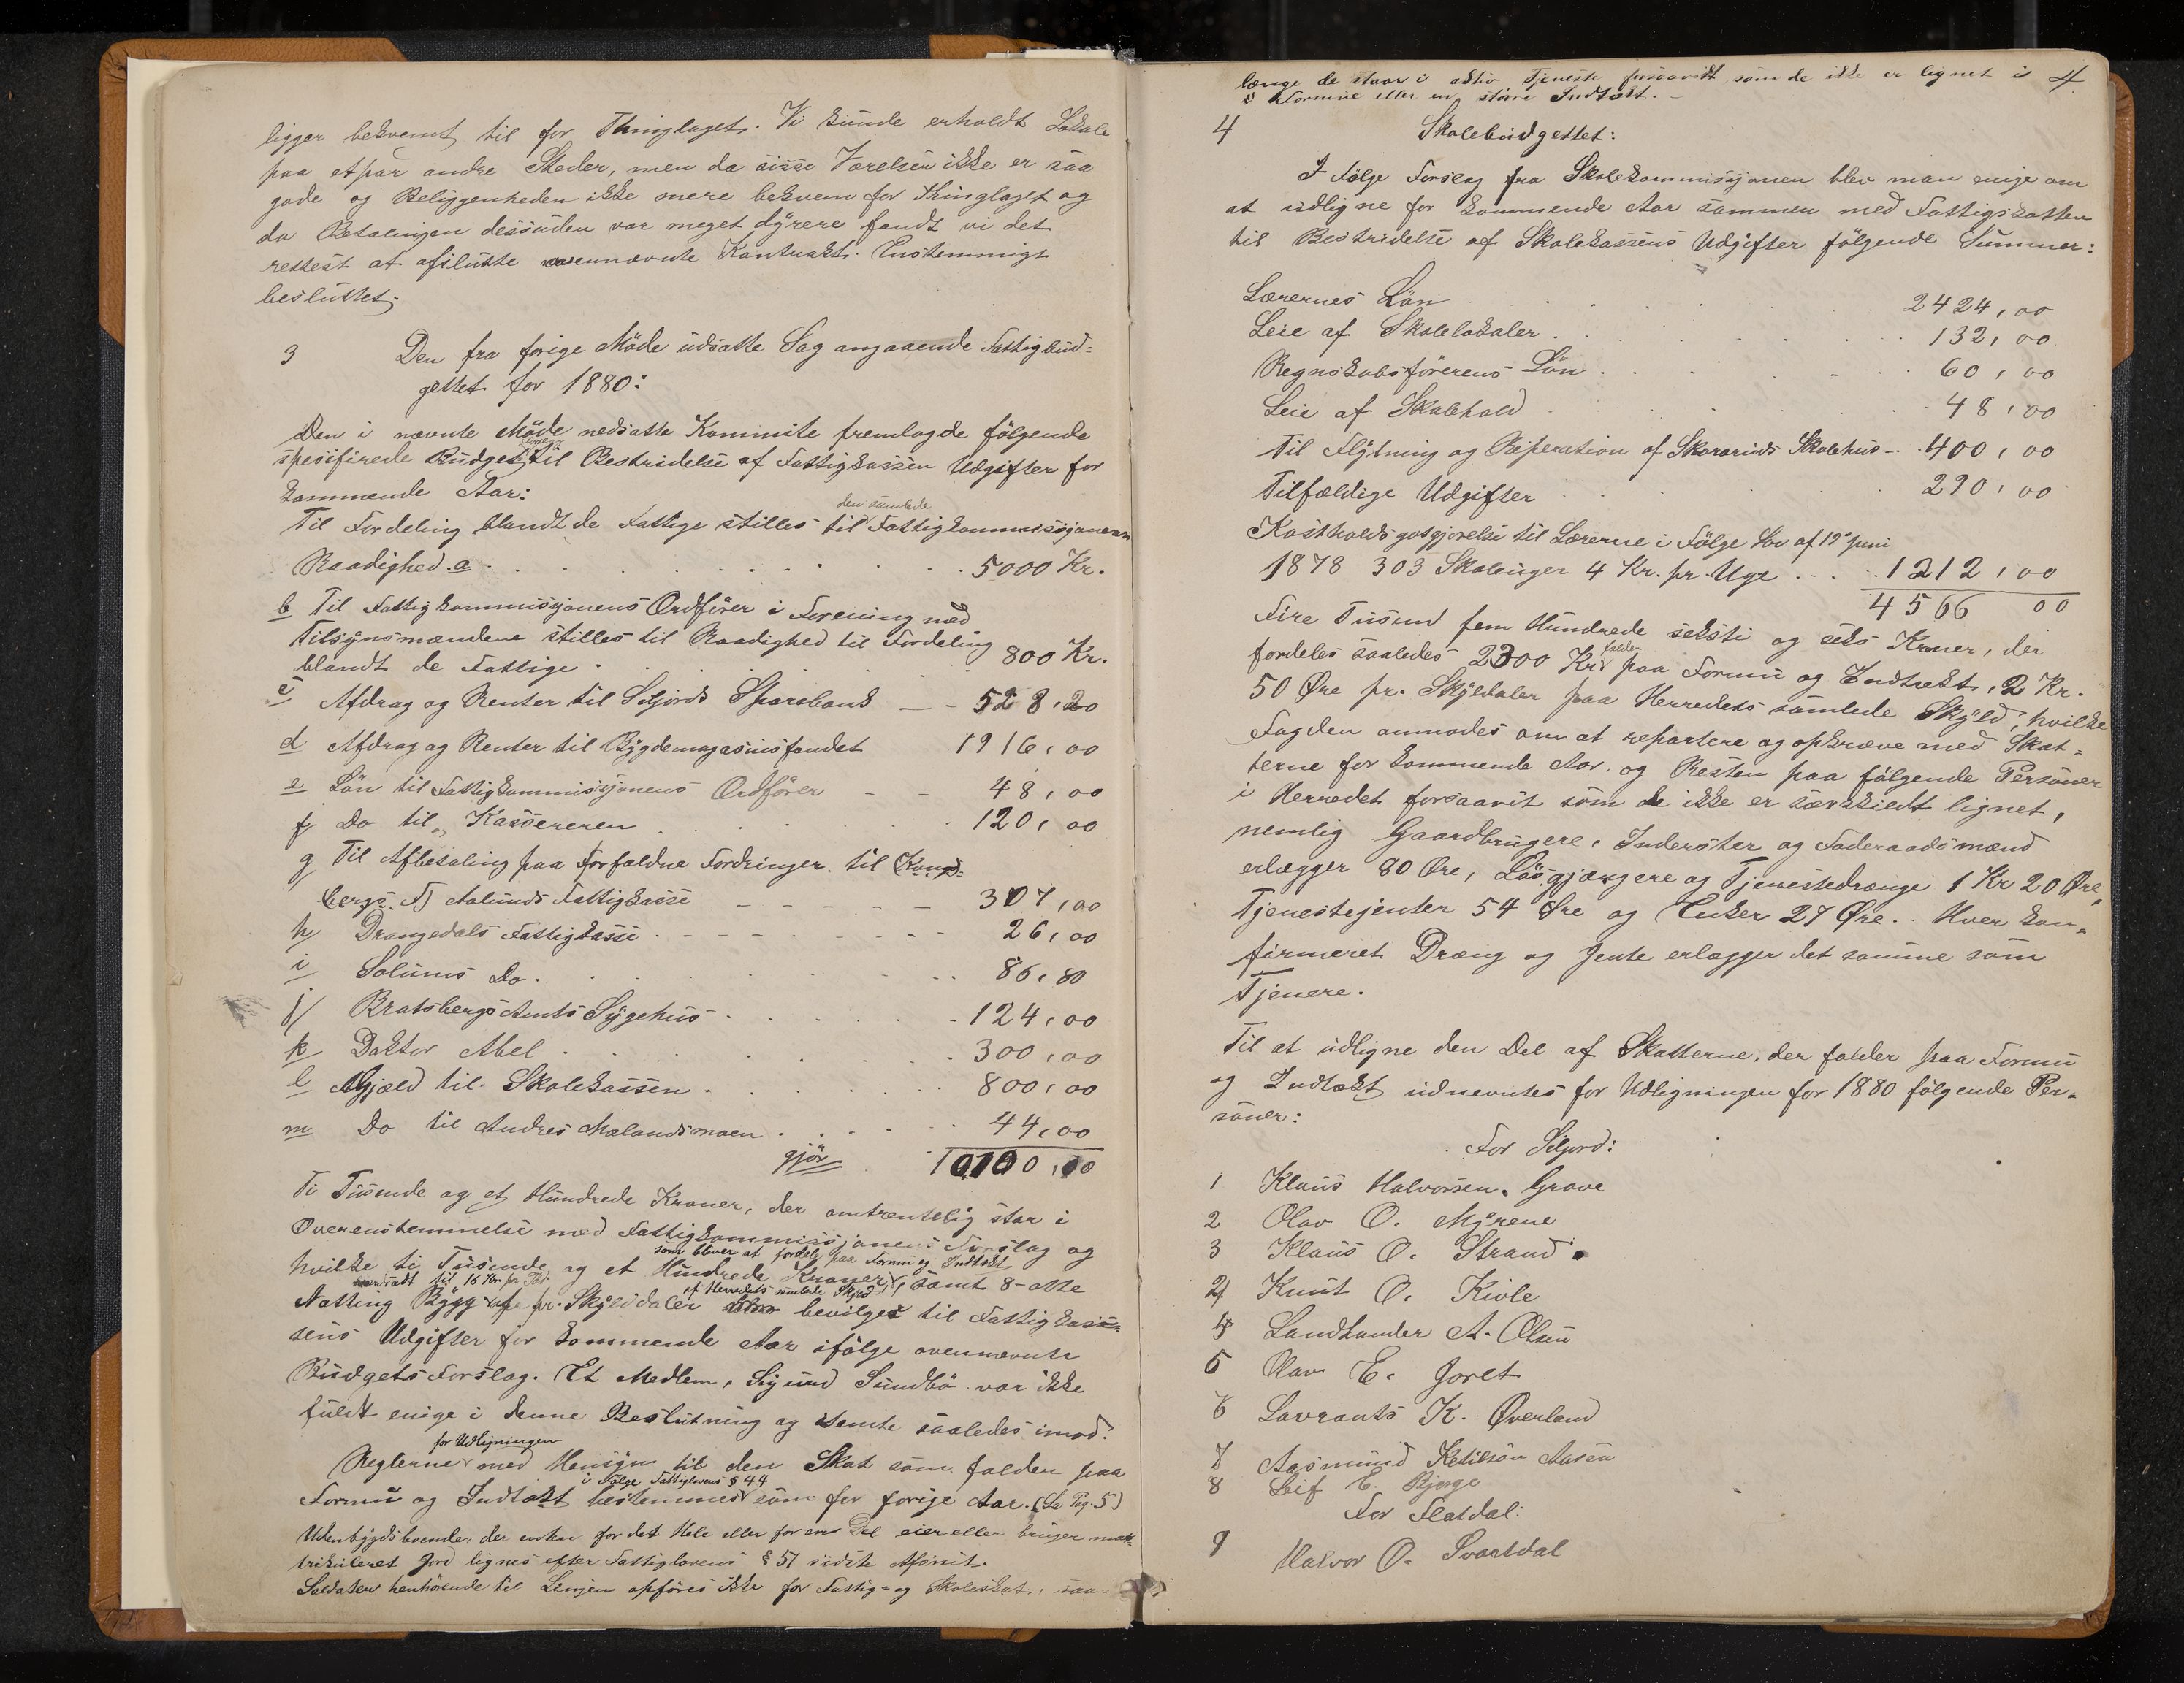 ligger bekvemt til for Thinglaget. Vi kunde erholdt Lokale
paa et par andre Steder, men da disse Værelser ikke er saa
gode og Beliggenheden ikke mere bekvem for Thinglaget og
da Betalingen dessuden var meget dyrere fandt vi det
rettest at afslutte ovennævnte Kontrakt. Enstemmigt
besluttet.
3 Den fra forige Møde udsatte Sag angaaende Fattigbud-
gettet for 1880:
Den i nævnte Møde nedsatte Kommite fremlagde følgende
spesifirede Budget til Bestridelse af Fattigkassen Udgifter for
kommende Aar:
den samlede
Til Fordeling blandt de Fattige stilles til Fattigkommissjonens
Raadighed. a . . . 5000 Kr.
b Til Fattigkommissjonens Ordfører i Forening med
Tilsynsmændene stilles til Raadighed til Fordeling
blandt de Fattige . . . 800 Kr.
c Afdrag og Renter til Seljords Sparebank — - 528,20
d Afdrag og Renter til Bygdemagasinsfondet 1916,00
e Løn til Fattigkommissjonens Ordfører - - 48,00
f Do til „ Kassereren . . . 120,00
g Til Afbetaling paa forfaldne Fordringer til Kongs-
bergs Fattigkasse - - - - 307,00
h Drangedals Fattigkasse . - - - 26,00
i Solums Do . . . 86,80
j Bratsbergs Amts Sygehus . . . 124,00
k Doktor Abel . . . 300,00
l Gjæld til Skolekassen . . . 800,00
m Do til Andres Mælandsmoen . . . 44,00
gjør 10100,00
Ti Tusende og et Hundrede Kroner, der omtrentelig star i
Overenstemmelse med Fattigkommissjonens Forslag og
som bliver at fordele paa Formu og Indtækt
hvilke ti Tusende og et Hundrede Kroner, samt 8 - otte
til 16 Kr. pr. Td. af Herredets samlede Skyld
Netting Bygg pr. Skylddaler bevilges til Fattigkas-
sens Udgifter for kommende Aar ifølge ovennævnte
Budgetsforslag. Et Medlem, Sigurd Sundbø var ikke
fuldt enige i denne Beslutning og stemte saaledes imod.
for Udligningen
Reglerne med Hensyn til den Skat som falder paa
i Følge Fattiglovens § 44
Formu og Indtækt bestemmes som for forige Aar. (Se Pag. 5)
Udenbygdsboende, der enten for det Hele eller for en Del eier eller bruger mat-
trikuleret Jord lignes efter Fattiglovens § 51 sidste Afsnit.
Soldater henhørende til Linjen opføres ikke for Fattig- og Skoleskat, saa-
længe de staar i aktiv Tjeneste forsaavidt som de ikke er lignet i 4
Formue eller en større Indtækt. -
4 Skolebudgettet:
I Følge Forslag fra Skolekommissjonen blev man enige om
at udligne for kommende Aar sammen med Fattigskatten
til Bestridelse af Skolekassens Udgifter følgende Summer:
Lærernes Løn . . . 2424,00
Leie af Skolelokaler . . . 132,00
Regnskabsførerens Løn . . . 60,00
Leie af Skolehold . . . 48,00
Til Flytning og Reperation af Skolehus - . 400,00
Tilfældige Udgifter . . . 290,00
Kostholdsgodtgjørelse til Lærerne i Følge Lov af 19de Juni
1878 303 Skoleuger 4 Kr. pr. Uge . . . 1212,00
4566 00
Fire Tusend fem Hundrede seksti og seks Kroner, der
falder
fordeles saaledes 2300 Kr. paa Formu og Indtækt, 2 Kr.
50 Øre pr. Skylddaler paa Herredets samlede Skyld, hvilke
Fogden anmodes om at repartere og opkræve med Skat-
terne for kommende Aar, og Resten paa følgende Personer
i Herredet forsaavit som de ikke er særskildt lignet,
nemlig Gaardbrugere, Inderster og Føderaadsmænd
erlægger 80 Øre, Løsgjængere og Tjenestedrænge 1 Kr 20 Øre,
Tjenestejenter 54 Øre og Enker 27 Øre. . Hver kon-
firmeret Dræng og Jente erlægger det samme som
Tjenere.
Til at udligne den Del af Skatterne, der falder paa Formu
og Indtækt udnevntes for Udligningen for 1880 følgende Per-
soner:
For Seljord:
1 Klaus Halvorsen Grave
2 Olav O. Myrene
3 Klaus O. Strand
4 Knut O. Kivle
Landhander A. Olsen
5 Olav E. Joret
6 Lavrants K. Øverland
7 Aasmund Ketilson Aasen
8 Leif E. Bjørge
For Flatdal:
9 Halvor O. Svartdal